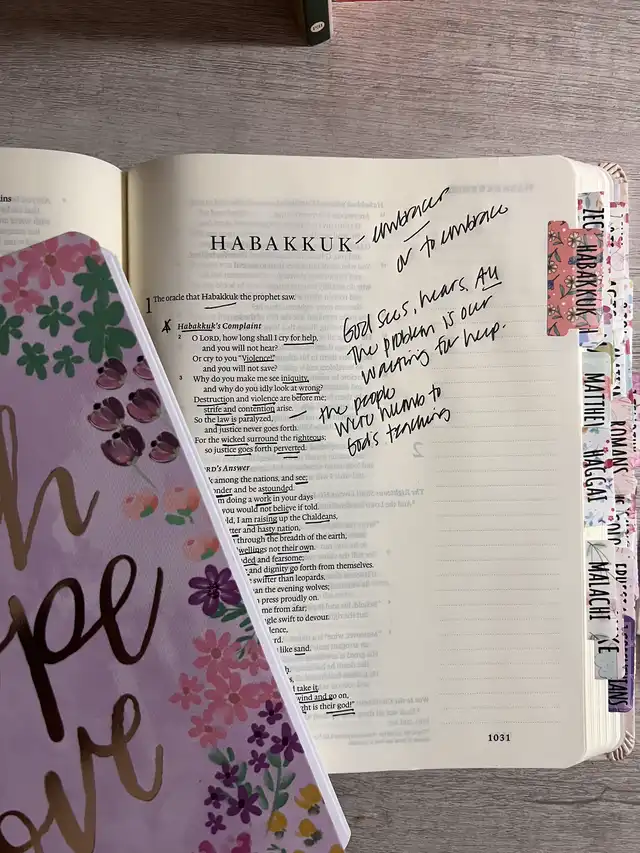 HABAKKUK
- embracer
or to embrace
1 The oracle that Habakkuk the prophet saw.
Habakkuk's Complaint
2 O LORD, how long shall I cry for help,
and you will not hear?
Or cry to you "Violence!"
and you will not save?
3 Why do you make me see iniquity,
and why do you idly look at wrong?
Destruction and violence are before me;
strife and contention arise.
4 So the law is paralyzed,
and justice never goes forth.
For the wicked surround the righteous;
so justice goes forth perverted.
God sees, hears, All
The problem is our
waiting for help.
- the people
were numb to
God's teaching
RD's Answer
k among the nations, and see;
onder and be astounded.
m doing a work in your days
you would not believe if told.
ld, I am raising up the Chaldeans,
tter and hasty nation,
through the breadth of the earth,
wellings not their own.
ded and fearsome;
and dignity go forth from themselves.
swifter than leopards,
an the evening wolves;
press proudly on.
me from afar;
gle swift to devour.
lence,
rd.
like sand.
h.
l take it.
wind and go on,
ght is their god!"
1031
HABAKKUK
MATTHEW
HAGGAI
MALACHI
ZEC
ROMANS
h
pe
ove